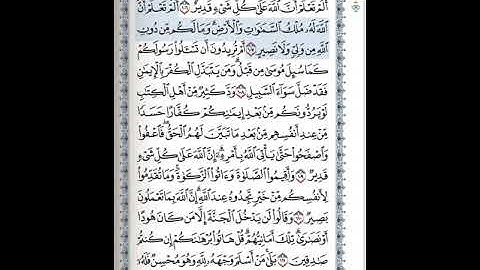 أَلَمْ تَعْلَمْ أَنَّ ٱللَّهَ عَلَىٰ كُلِّ شَىْءٍ قَدِيرٌ ١٠٦ أَلَمْ تَعْلَمْ أَنَّ
ٱللَّهَ لَهُۥ مُلْكُ ٱلسَّمَٰوَٰتِ وَٱلْأَرْضِ وَمَا لَكُم مِّن دُونِ
ٱللَّهِ مِن وَلِىٍّ وَلَا نَصِيرٍ ١٠٧ أَمْ تُرِيدُونَ أَن تَسْـَٔلُوا۟ رَسُولَكُمْ
كَمَا سُئِلَ مُوسَىٰ مِن قَبْلُ وَمَن يَتَبَدَّلِ ٱلْكُفْرَ بِٱلْإِيمَٰنِ
فَقَدْ ضَلَّ سَوَآءَ ٱلسَّبِيلِ ١٠٨ وَدَّ كَثِيرٌ مِّنْ أَهْلِ ٱلْكِتَٰبِ
لَوْ يَرُدُّونَكُم مِّنۢ بَعْدِ إِيمَٰنِكُمْ كُفَّارًا حَسَدًا
مِّنْ عِندِ أَنفُسِهِم مِّنۢ بَعْدِ مَا تَبَيَّنَ لَهُمُ ٱلْحَقُّ فَٱعْفُوا۟
وَٱصْفَحُوا۟ حَتَّىٰ يَأْتِىَ ٱللَّهُ بِأَمْرِهِۦٓ إِنَّ ٱللَّهَ عَلَىٰ كُلِّ شَىْءٍ
قَدِيرٌ ١٠٩ وَأَقِيمُوا۟ ٱلصَّلَوٰةَ وَءَاتُوا۟ ٱلزَّكَوٰةَ وَمَا تُقَدِّمُوا۟
لِأَنفُسِكُم مِّنْ خَيْرٍ تَجِدُوهُ عِندَ ٱللَّهِ إِنَّ ٱللَّهَ بِمَا تَعْمَلُونَ
بَصِيرٌ ١١٠ وَقَالُوا۟ لَن يَدْخُلَ ٱلْجَنَّةَ إِلَّا مَن كَانَ هُودًا
أَوْ نَصَٰرَىٰ تِلْكَ أَمَانِيُّهُمْ قُلْ هَاتُوا۟ بُرْهَٰنَكُمْ إِن كُنتُمْ
صَٰدِقِينَ ١١١ بَلَىٰ مَنْ أَسْلَمَ وَجْهَهُۥ لِلَّهِ وَهُوَ مُحْسِنٌ فَلَهُۥٓ